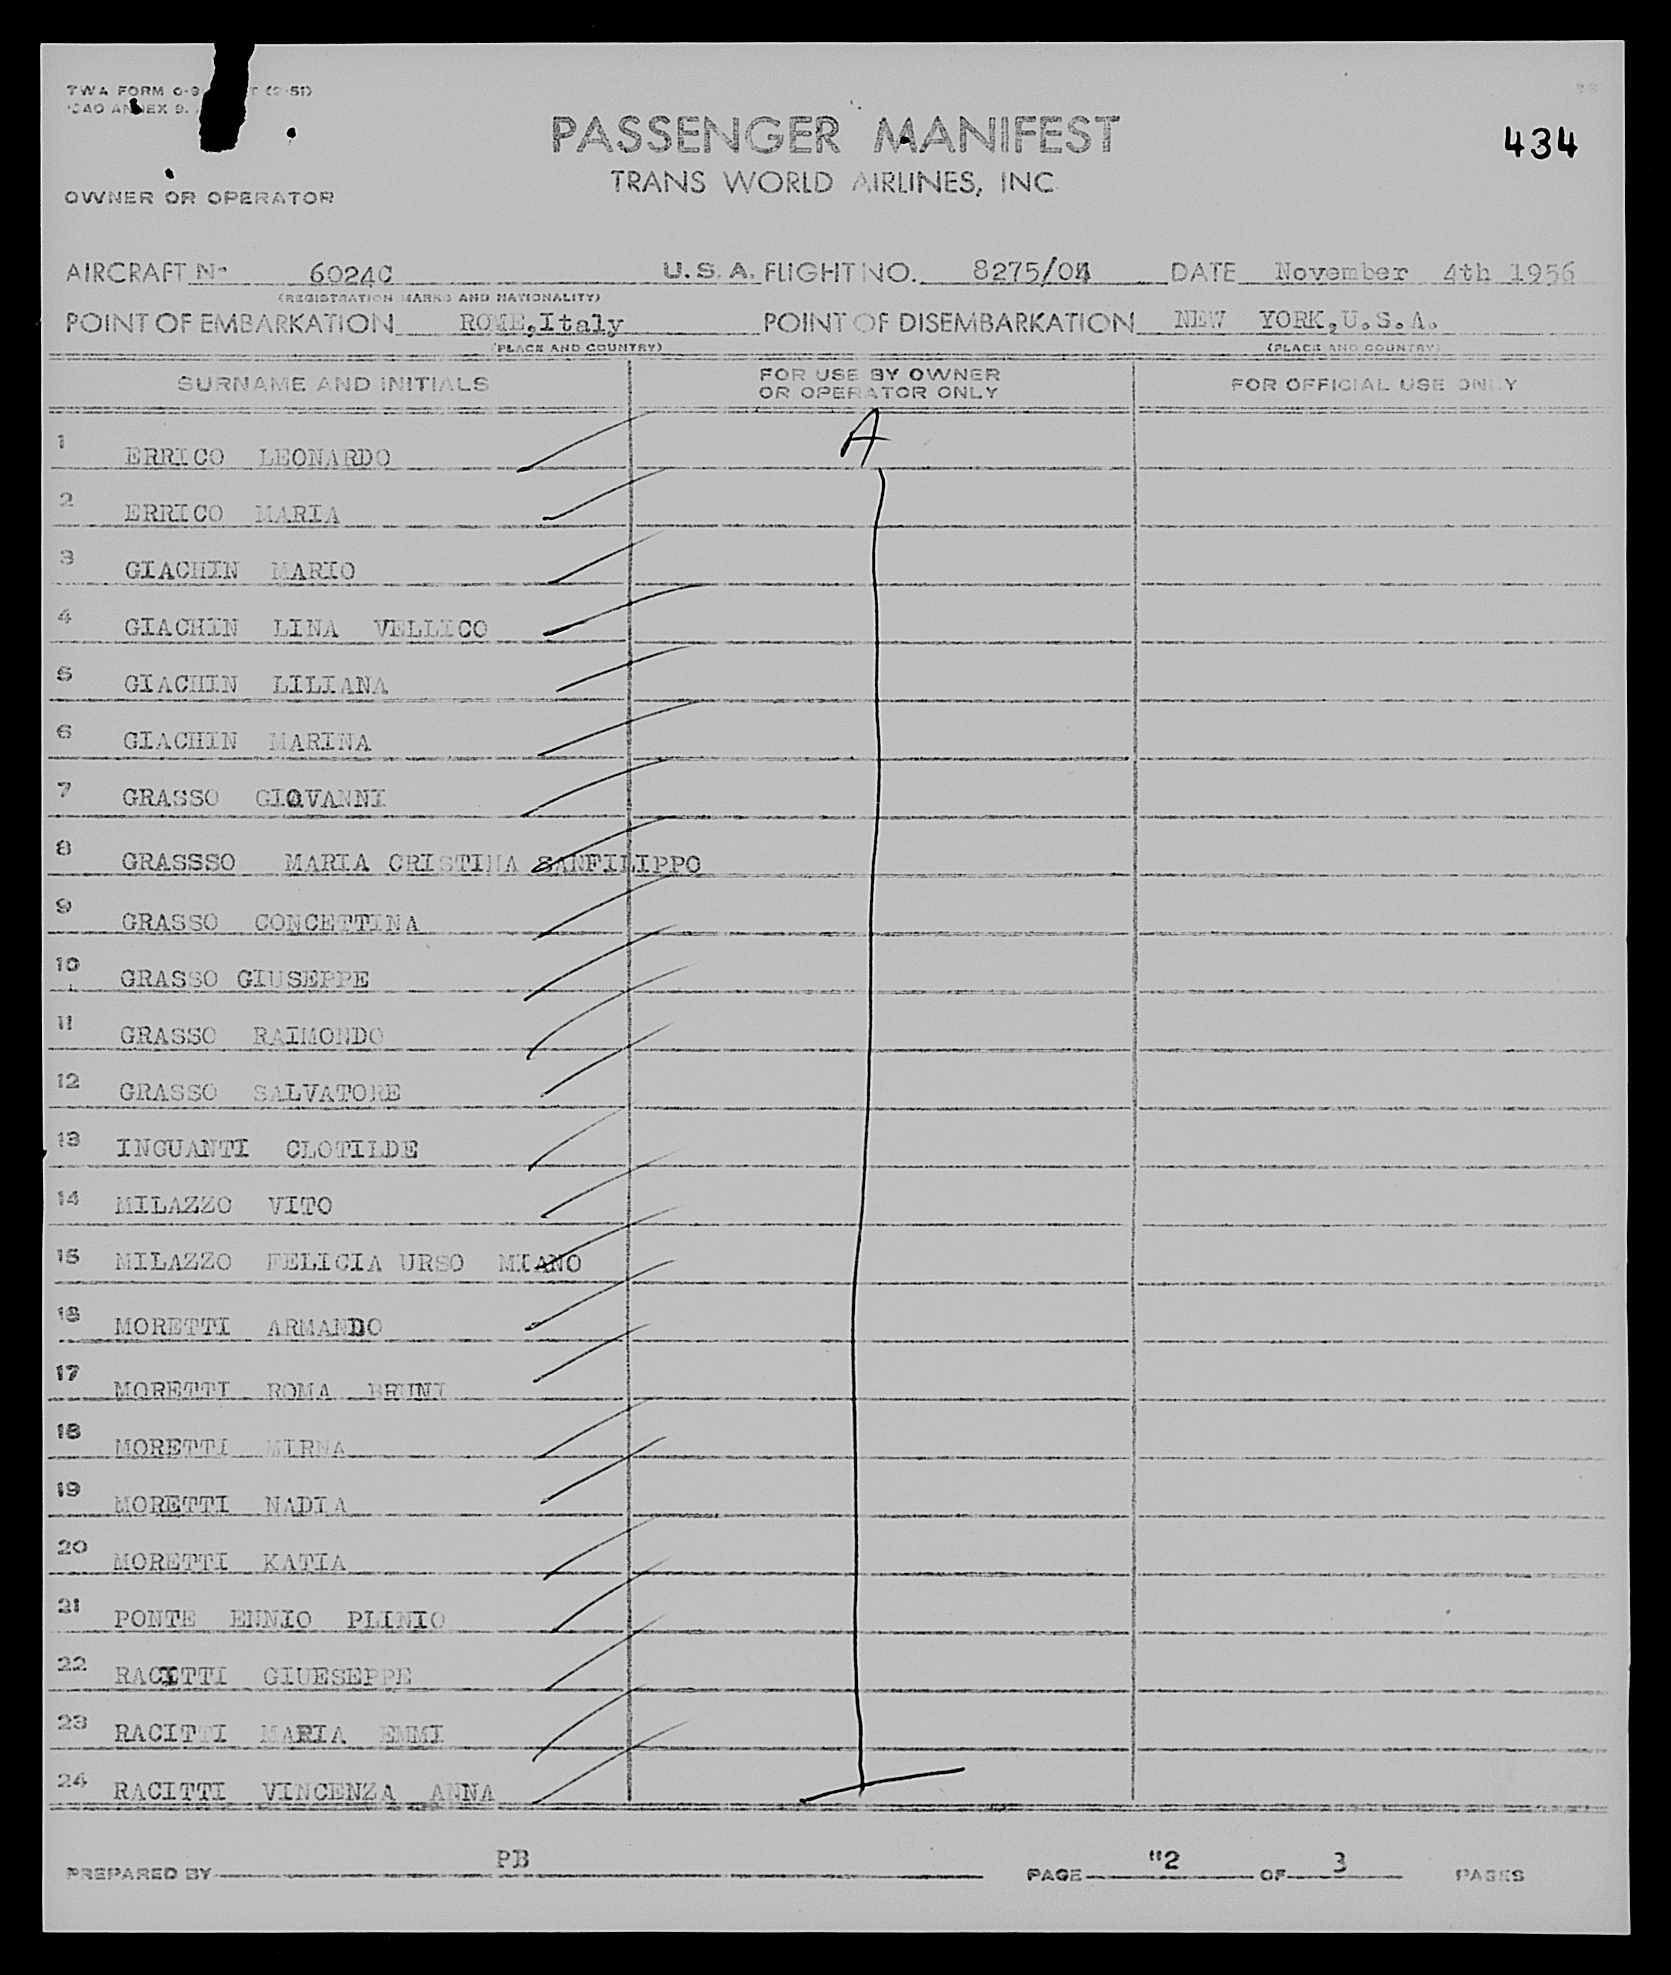 TWA FORM
ANNEX 9.
PASSENGER MANIFEST
434
TRANS WORLD AIRLINES, INC
OWNER OR OPERATOR
AIRCRAFT Nº 6024C U.S.A. FLIGHT NO. 8275/04 DATE November 4th 1956
(REGISTRATION MARKS AND NATIONALITY)
POINT OF EMBARKATION ROME,Italy POINT OF DISEMBARKATION NEW YORK,U.S.A.
(PLACE AND COUNTRY) (PLACE AND COUNTRY)
SURNAME AND INITIALS FOR USE BY OWNER OR OPERATOR ONLY FOR OFFICIAL USE ONLY
A
1 ERRICO LEONARDO
2 ERRICO MARIA
3 GIACHIN MARIO
4 GIACHIN LINA VELLICO
5 GIACHIN LILIANA
6 GIACHIN MARINA
7 GRASSO GIOVANNI
8 GRASSSO MARIA CRISTINA SANFILIPPO
9 GRASSO CONCETTINA
10 GRASSO GIUSEPPE
11 GRASSO RAIMONDO
12 GRASSO SALVATORE
13 INGUANTI CLOTILDE
14 MILAZZO VITO
15 MILAZZO FELICIA URSO MIANO
16 MORETTI ARMANDO
17 MORETTI ROMA BRUNI
18 MORETTI MIRNA
19 MORETTI NADIA
20 MORETTI KATIA
21 PONTE ENNIO PLINIO
22 RACITTI GIUESEPPE
23 RACITTI MARIA EMMI
24 RACITTI VINCENZA ANNA
PREPARED BY PB PAGE "2 OF 3 PAGES